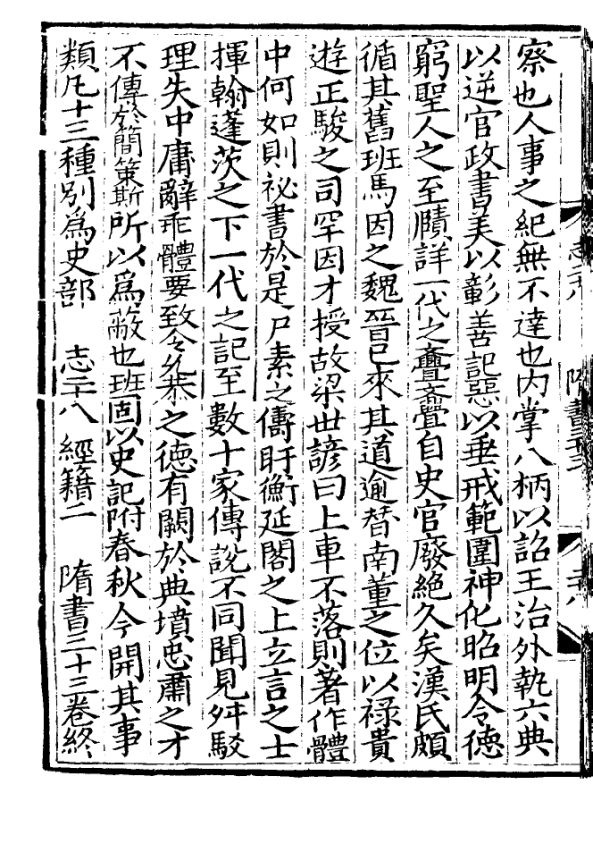 察也人事之紀無不達也内掌八柄以詔王治外執六典
以逆官政書美以彰善記惡以垂戒範圍神化昭明令德
窮聖人之至賾詳一代之亹亹自史官廢絶久矣漢氏頗
循其舊班馬因之魏晉已來其道逾替南董之位以禄貴
遊正駿之司罕因才授故梁世諺曰上車不落則著作體
中何如則祕書於是尸素之儔盱衡延閣之上立言之士
揮翰蓬茨之下一代之記至數十家傳說不同聞見舛駁
理失中庸辭乖體要致令允恭之德有闕於典墳忠肅之才
不傳於簡策斯所以爲蔽也班固以史記附春秋今開其事
類凡十三種别爲史部　志二十八　經籍二　隋書三十三卷終